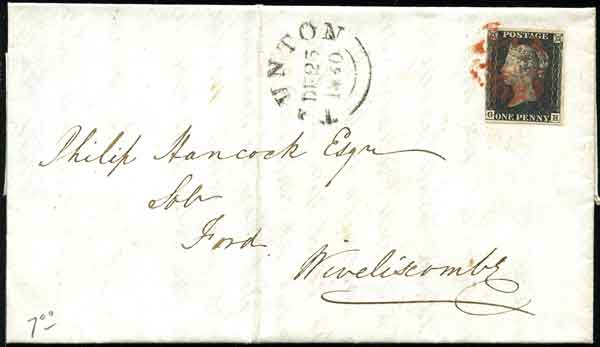 UNTON
DE 25
1840
POSTAGE
G H
ONE PENNY
Philip Hancock Esqr
Solr
Ford
Wiveliscombe
7⁰⁰